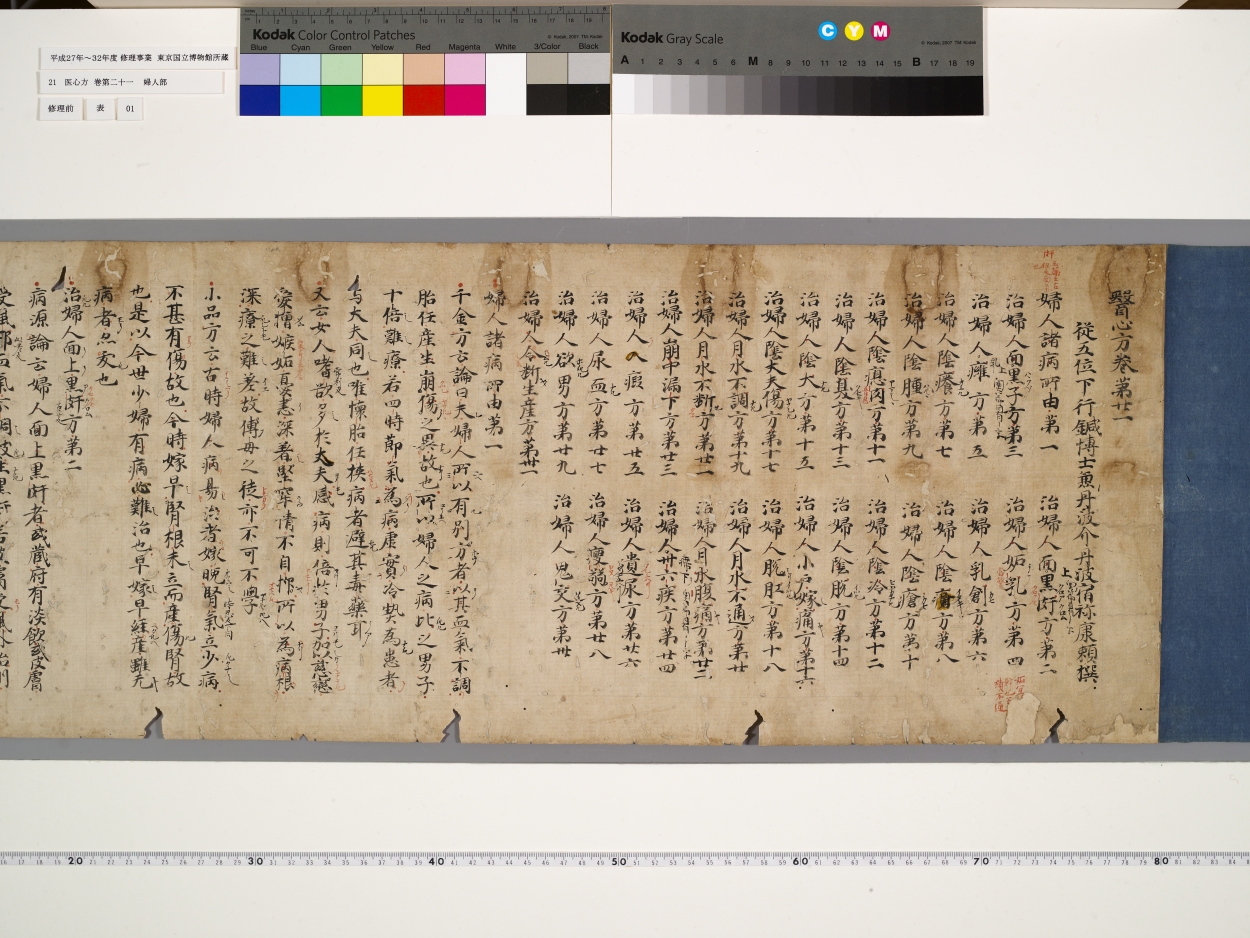 平成27年～32年度 修理事業 東京国立博物館所蔵
21 医心方 巻第二十一 婦人部
修理前 表 01
Kodak Color Control Patches
Blue Cyan Green Yellow Red Magenta White 3/Color Black
Kodak Gray Scale
C Y M
A 1 2 3 4 5 6 M 8 9 10 11 12 13 14 15 B 17 18 19
醫心方卷第廿一
從五位下行鍼博士兼丹波介丹波宿祢康頼撰
婦人諸病所由第一 治婦人面上黒䵟方第二
治婦人面黒子方第三 治婦人妬乳方第四
治婦人癰方第五 治婦人乳創方第六
治婦人陰癢方第七 治婦人陰痛方第八
治婦人陰腫方第九 治婦人陰瘡方第十
治婦人陰瘜肉方第十一 治婦人陰冷方第十二
治婦人陰臭方第十三 治婦人陰脱方第十四
治婦人陰大方第十五 治婦人小戸嫁痛方第十六
治婦人陰丈夫傷方第十七 治婦人脱肛方第十八
治婦人月水不調方第十九 治婦人月水不通方第廿
治婦人月水不断方第廿一 治婦人月水腹痛方第廿二
治婦人崩中漏下方第廿三 治婦人卅六疾方第廿四
治婦人八瘕方第廿五 治婦人遺尿方第廿六
治婦人尿血方第廿七 治婦人瘦弱方第廿八
治婦人欲男方第廿九 治婦人鬼交方第卅
治婦人令断生産方第卅一
婦人諸病所由第一
千金方云論曰夫婦人所以有別方者以其血氣不調
胎任産生崩傷之異故也所以婦人之病比之男子
十倍難療若四時節氣為病虚實冷熱為患者
与大夫同也唯懐胎任挾病者避其毒藥耳
又云女人嗜欲多於丈夫感病則倍於男子加以慈戀
愛憎嫉妬憂恚深著堅牢情不自抑所以為病根
深療之難差故傅母之徒亦不可不學
小品方云古時婦人病易治者嫁晩腎氣立少病
不甚有傷故也今時嫁早腎根未立而産傷腎故
也是以今世少婦有病必難治也早嫁早經産雖无
病者亦廢也
治婦人面上黒䵟方第二
病源論云婦人面上黒䵟者或藏府有淡飲或皮膚
20 30 40 50 60 70 80